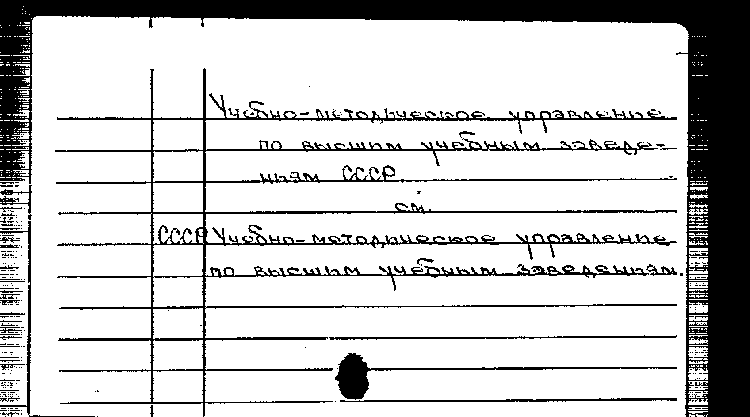 Учебно-методическое управление
по высшим учебным заведе-
ниям СССР.
см.
СССР Учебно-методическое управление
по высшим учебным заведениям.